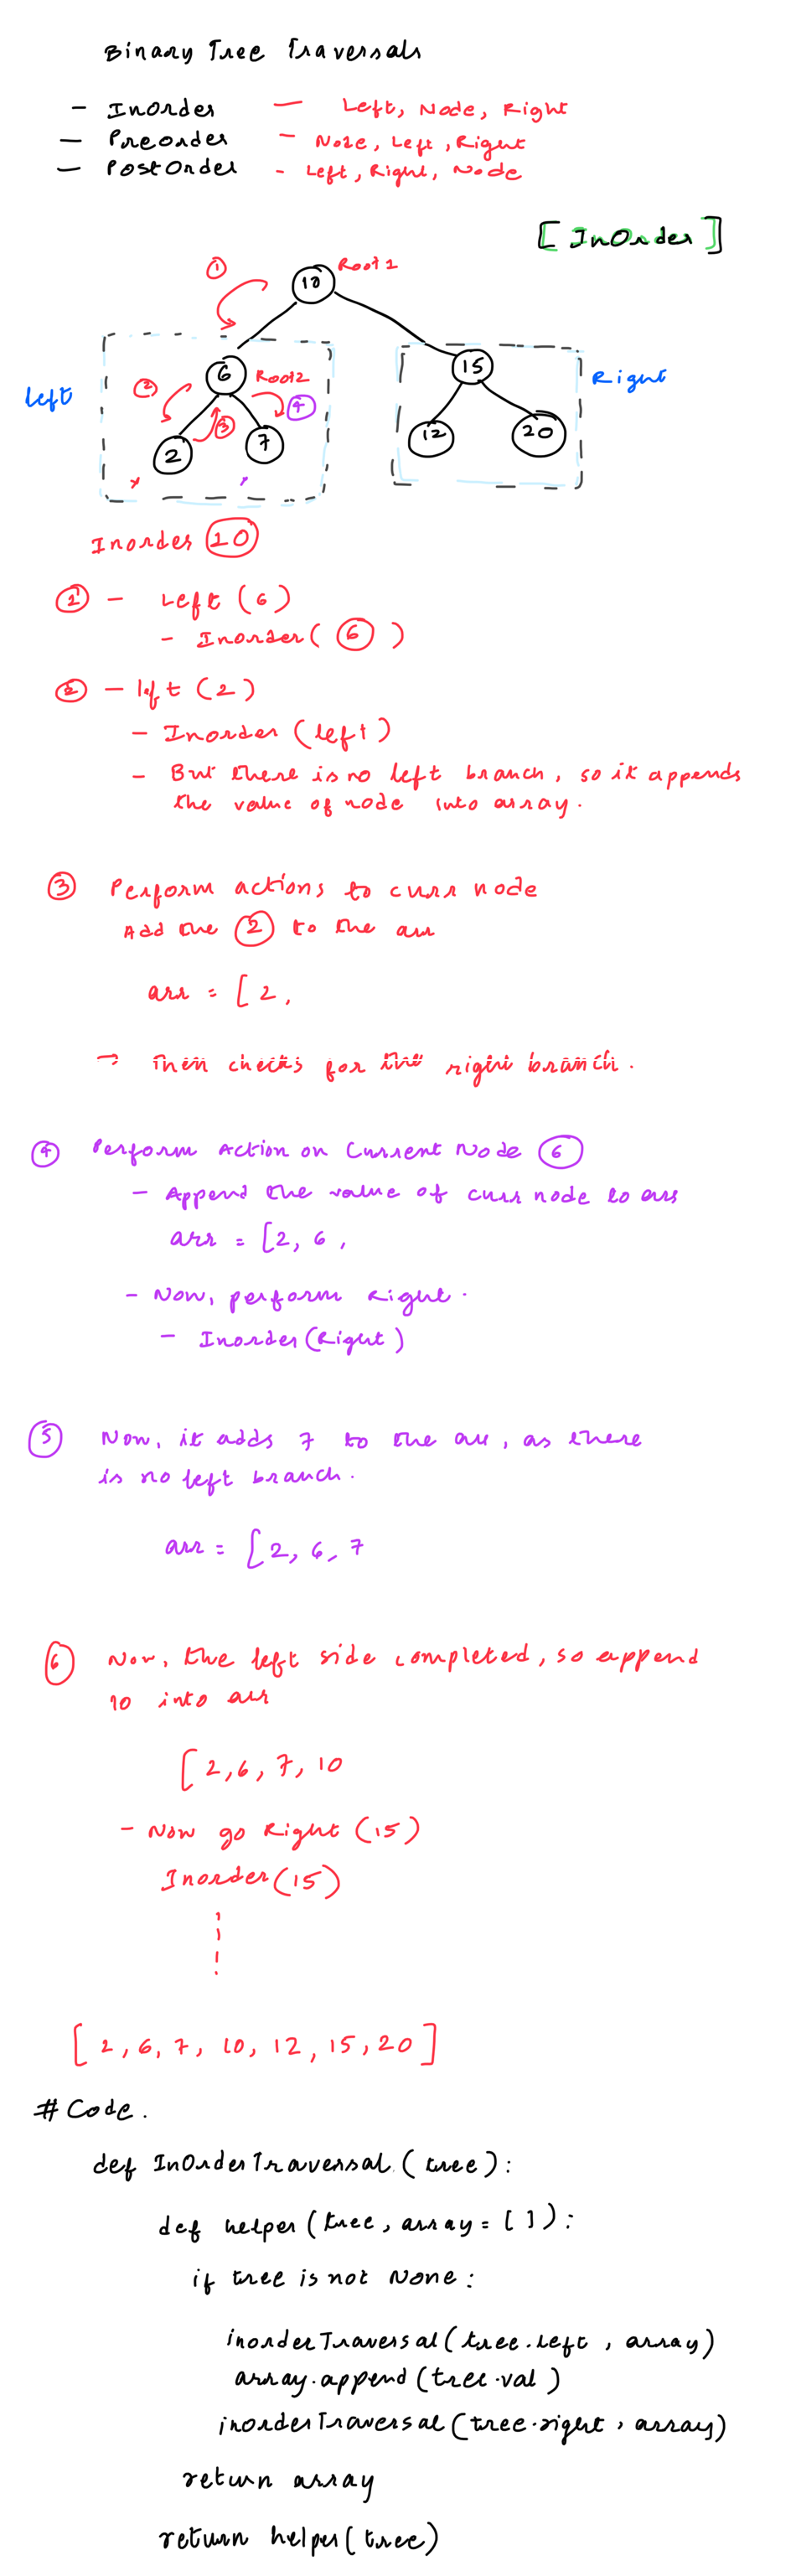 Binary Tree Traversals
- Inorder - Left, Node, Right
- Preorder - Node, Left, Right
- PostOrder - Left, Right, Node
[InOrder]
1
10
Root 1
6
Root 2
15
Left
Right
2
3
4
2
7
12
20
Inorder 10
1 - Left (6)
- Inorder (6)
2 - left (2)
- Inorder (left)
- But there is no left branch, so it appends
the value of node into array.
3 Perform actions to curr node
Add the 2 to the arr
arr = [2,
→ Then checks for the right branch.
4 Perform Action on Current Node 6
- Append the value of curr node to arr
arr = [2, 6,
- Now, perform Right.
- Inorder (Right)
5 Now, it adds 7 to the arr, as there
is no left branch.
arr = [2, 6, 7
6 Now, the left side completed, so append
10 into arr
[2, 6, 7, 10
- Now go Right (15)
Inorder (15)
[2, 6, 7, 10, 12, 15, 20]
# Code.
def InOrderTraversal (tree):
def helper (tree, array = []):
if tree is not None:
inorderTraversal (tree.left, array)
array.append (tree.val)
inorderTraversal (tree.right, array)
return array
return helper (tree)